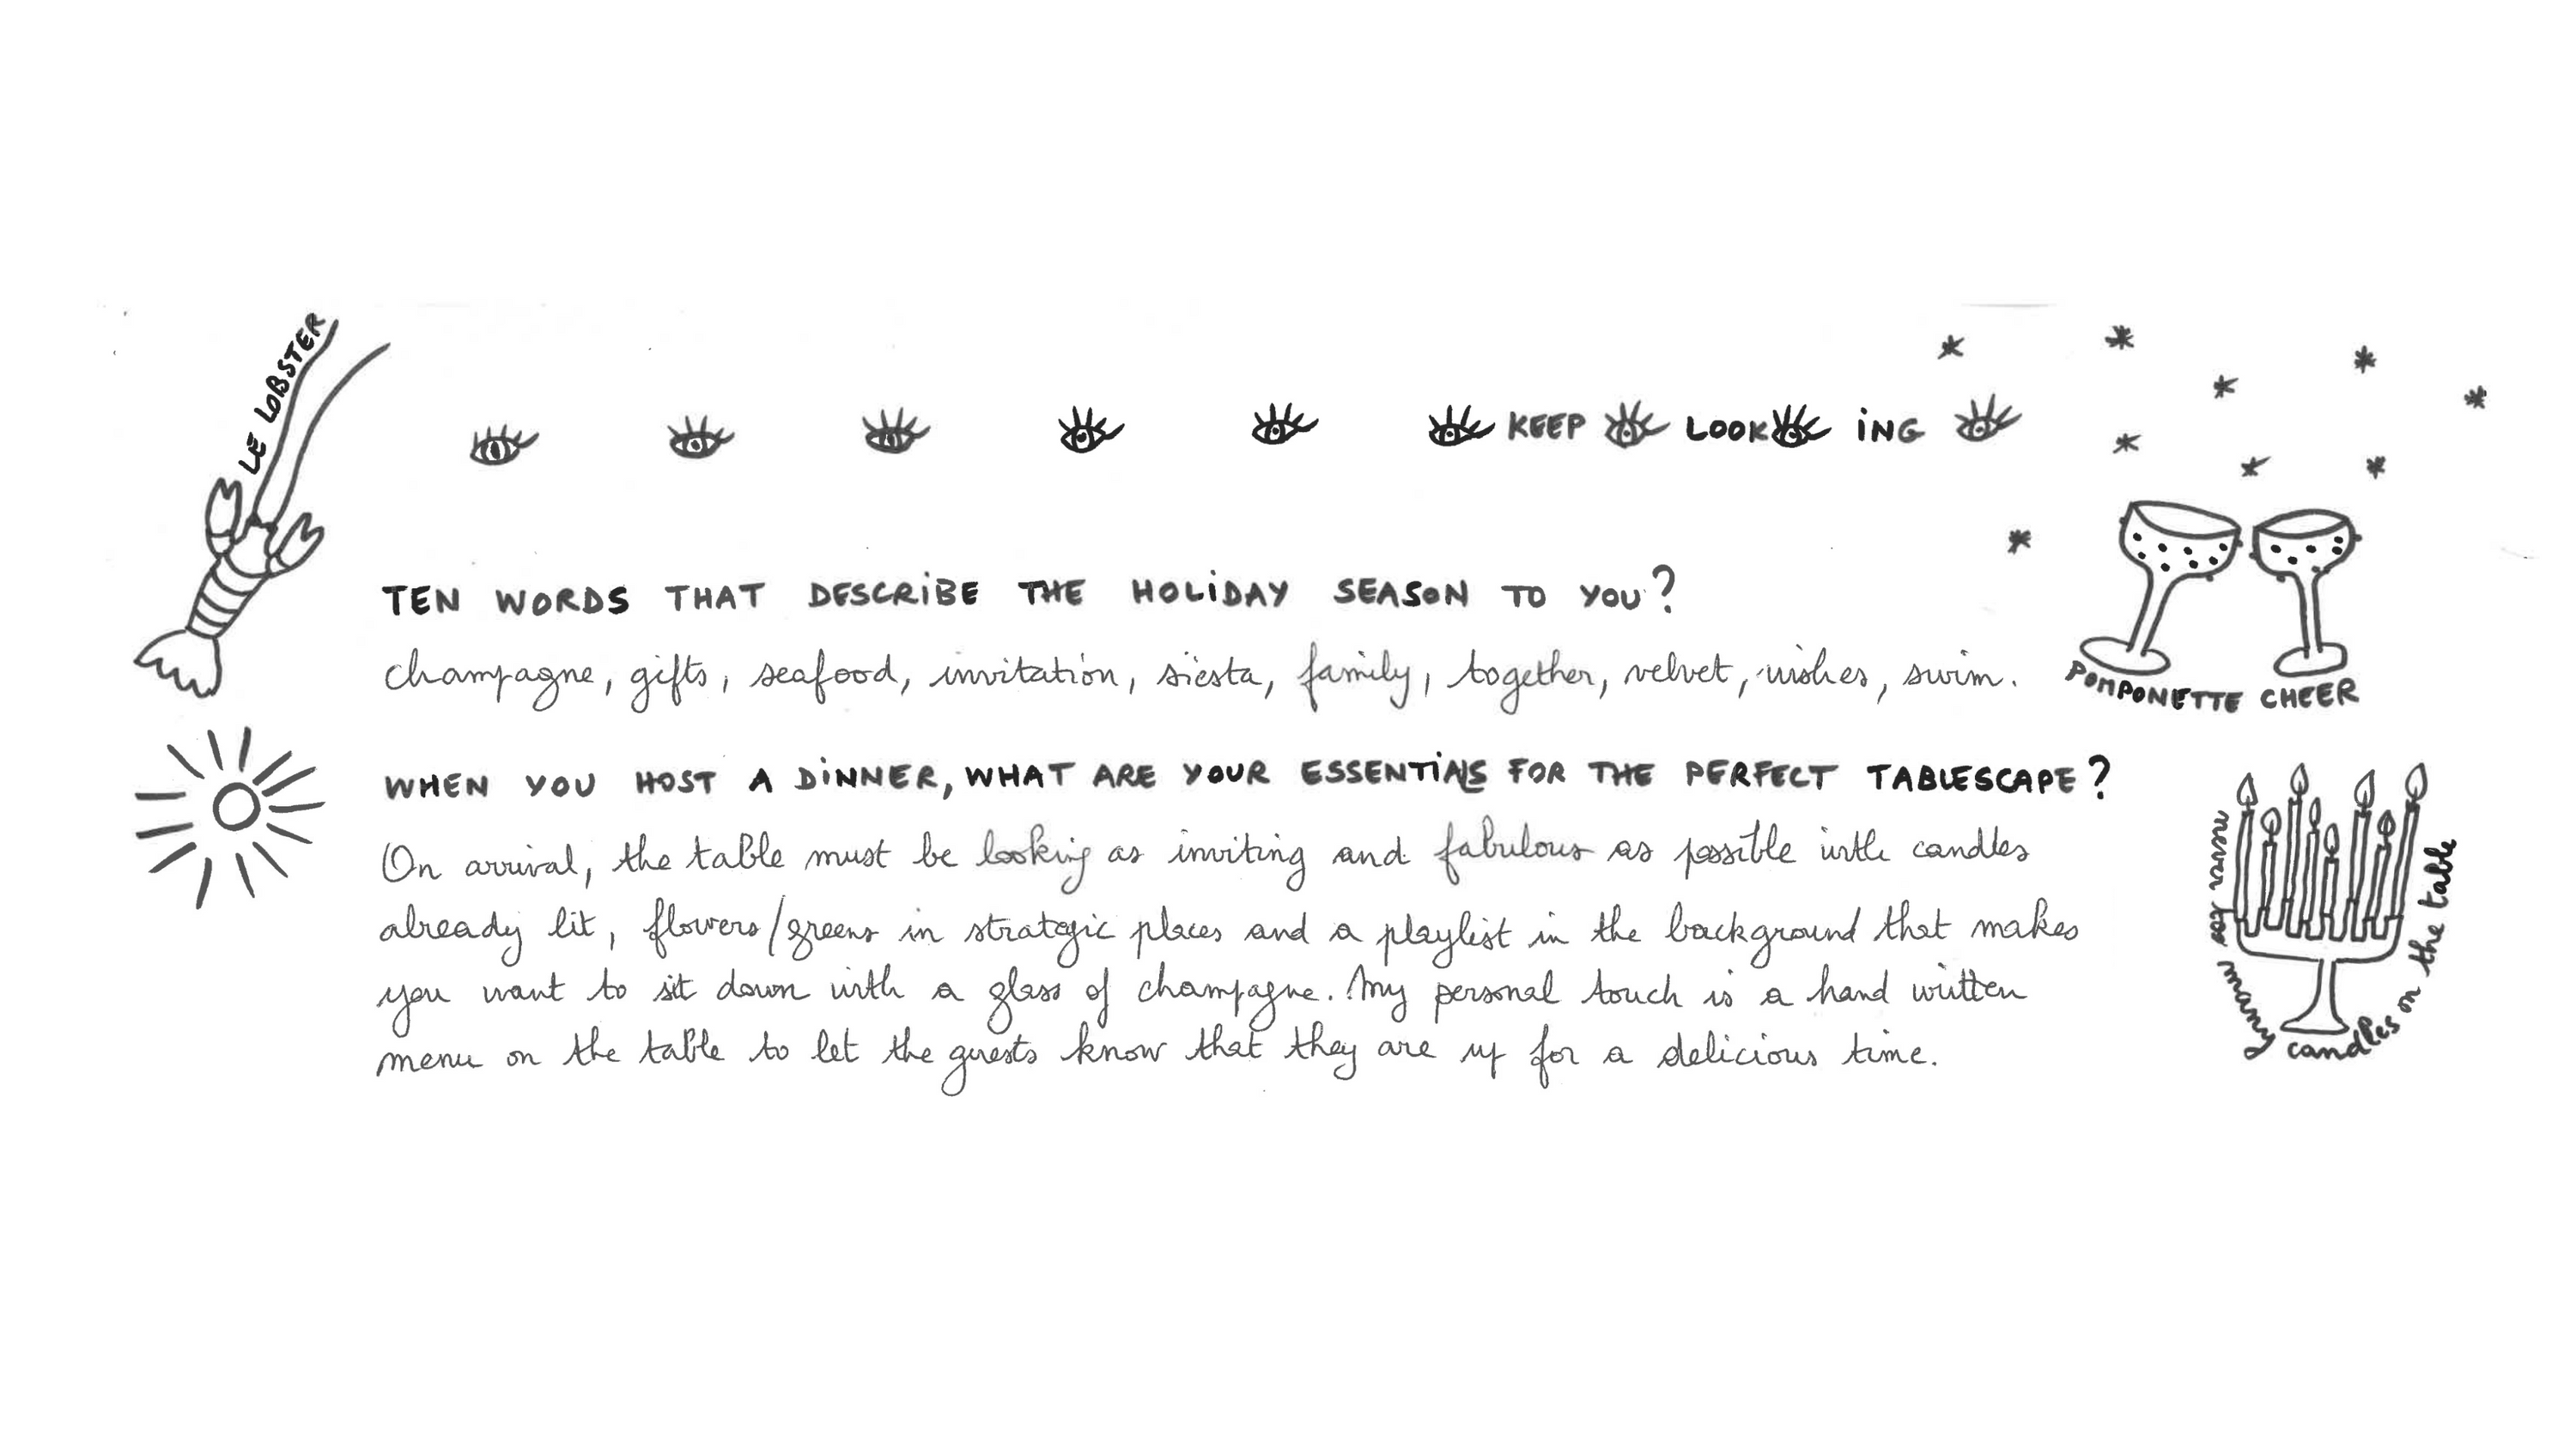 LE LOBSTER
KEEP LOOK ING
TEN WORDS THAT DESCRIBE THE HOLIDAY SEASON TO YOU?
champagne, gifts, seafood, invitation, siësta, family, together, velvet, wishes, swim.
POMPONETTE CHEER
WHEN YOU HOST A DINNER, WHAT ARE YOUR ESSENTIALS FOR THE PERFECT TABLESCAPE?
On arrival, the table must be looking as inviting and fabulous as possible with candles
already lit, flowers/greens in strategic places and a playlist in the background that makes
you want to sit down with a glass of champagne. My personal touch is a hand written
menu on the table to let the guests know that they are up for a delicious time.
never too many candles on the table